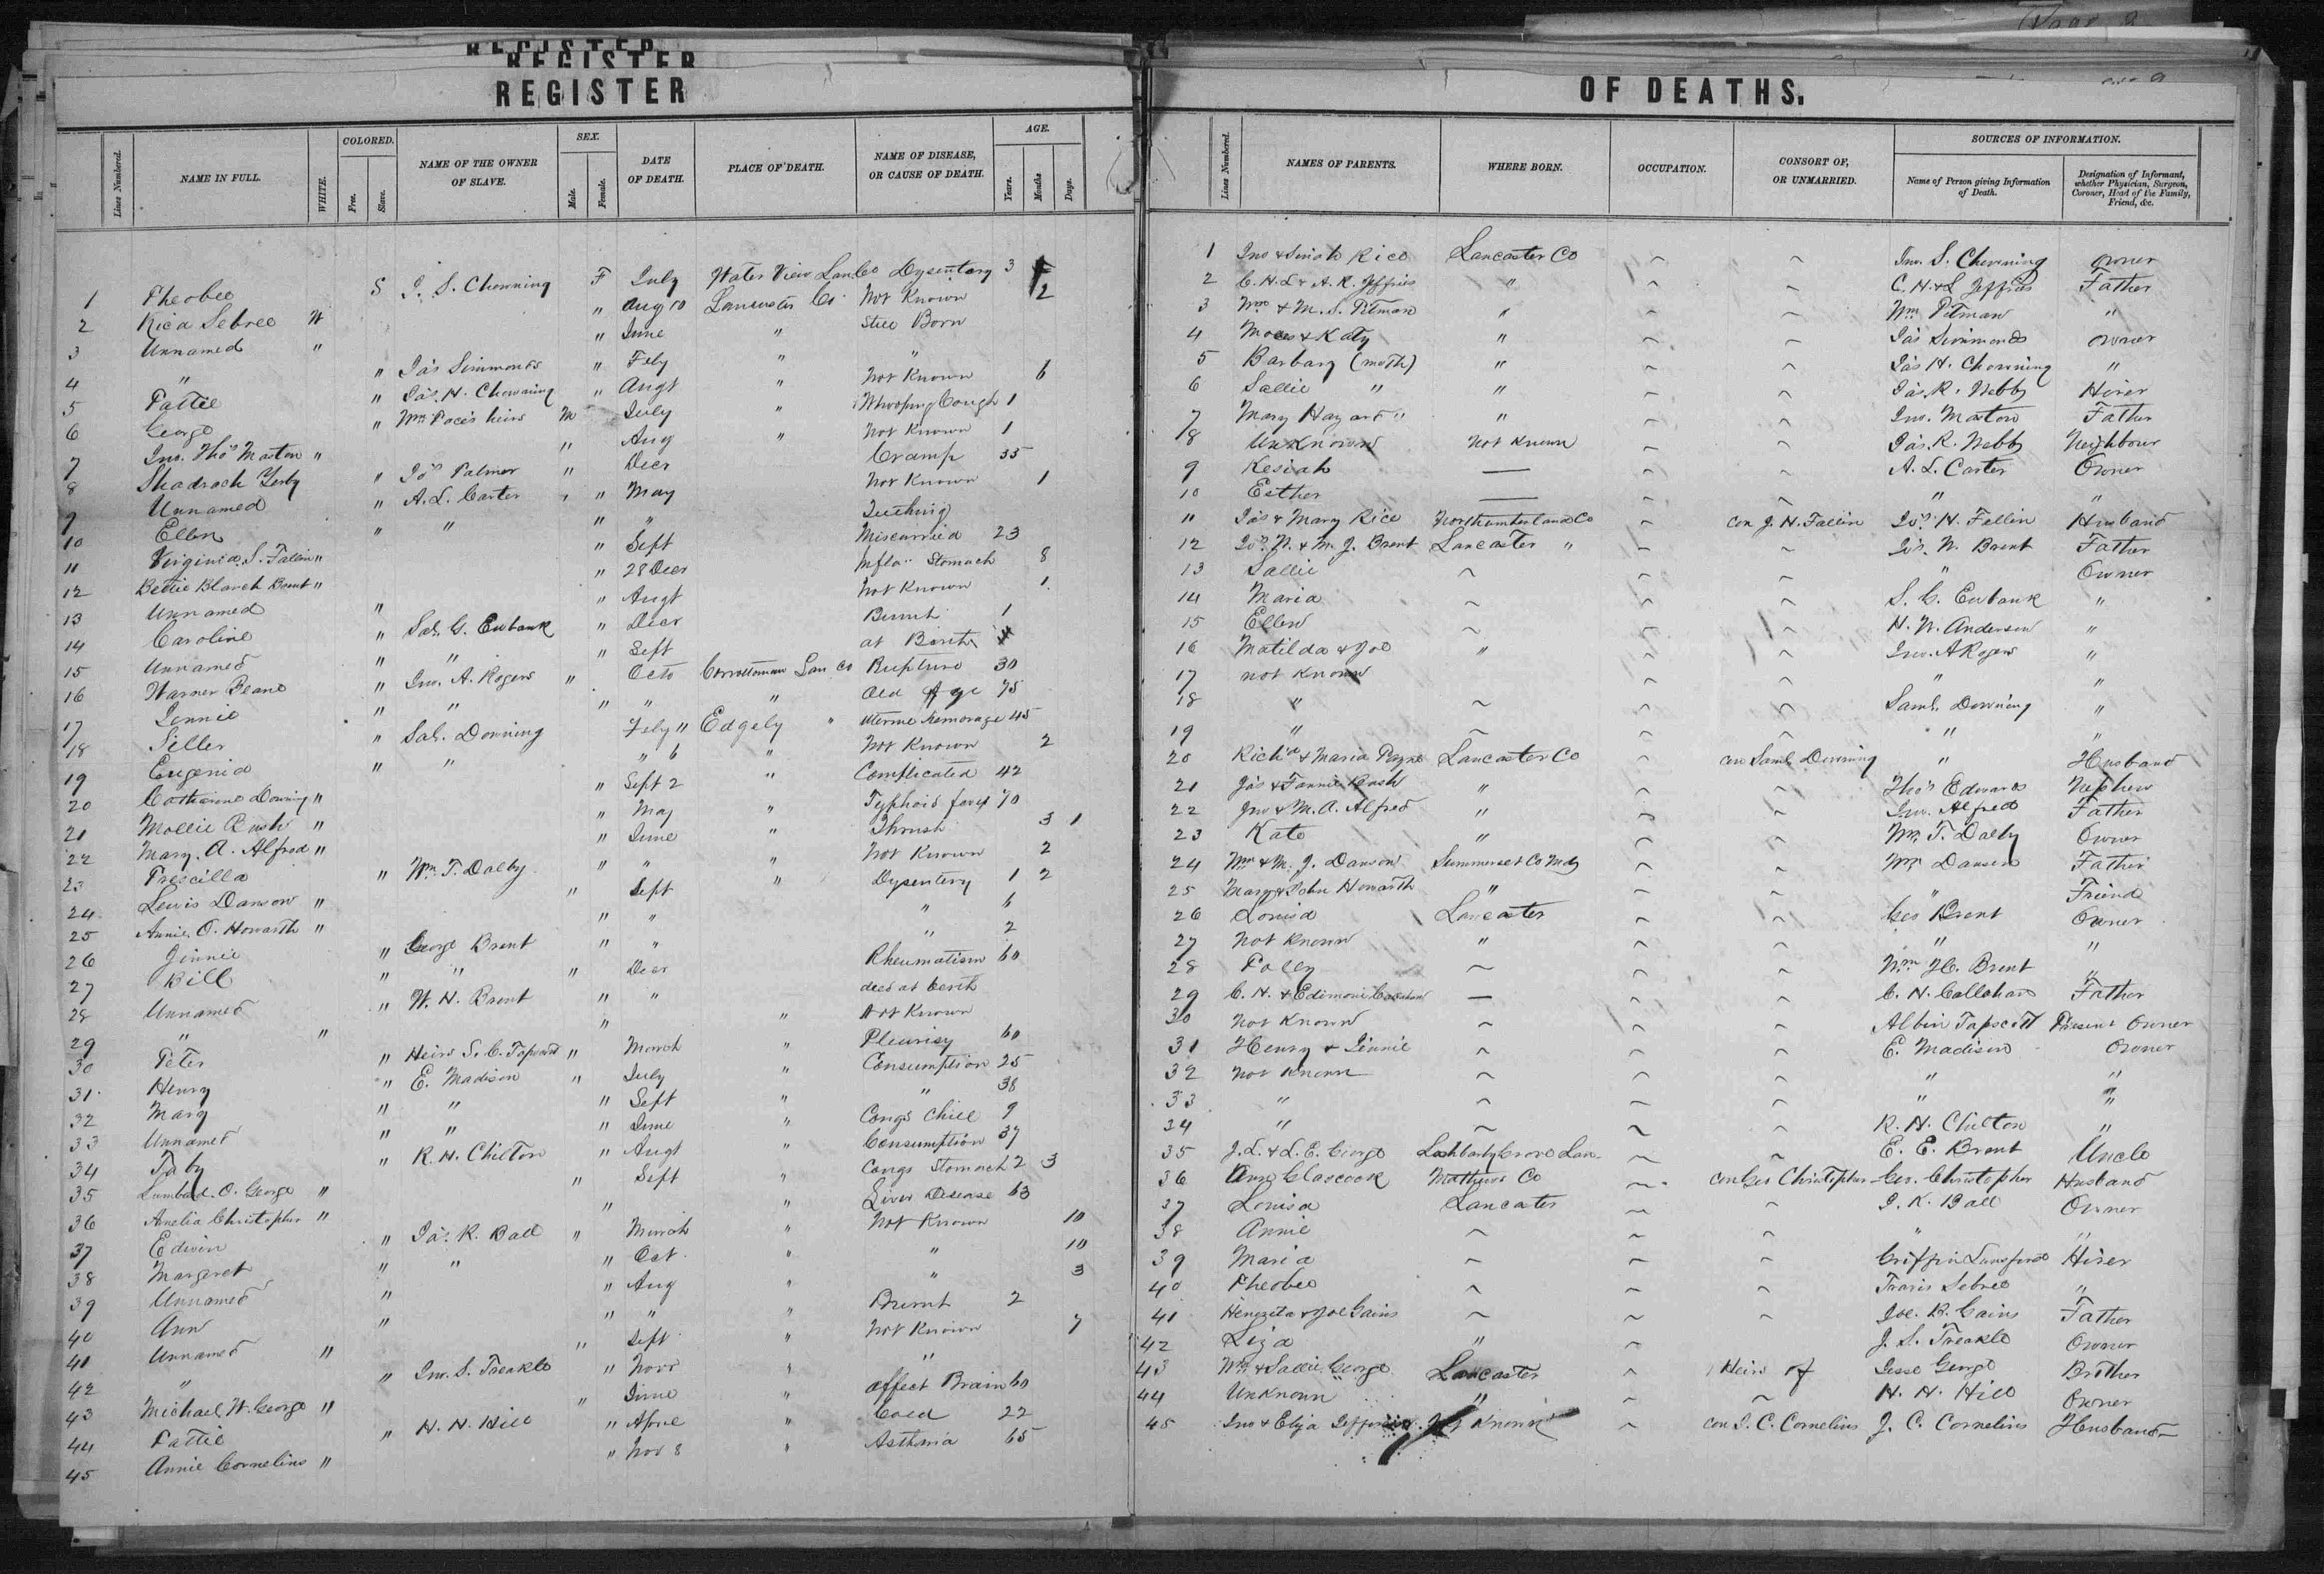 REGISTER
OF DEATHS.
Lines Numbered. NAME IN FULL. WHITE. COLORED. Free. Slave. NAME OF THE OWNER OF SLAVE. SEX. Male. Female. DATE OF DEATH. PLACE OF DEATH. NAME OF DISEASE, OR CAUSE OF DEATH. AGE. Years. Months Days.
1 Pheobee S J. S. Chowning F July Water View Lan Co Dysentary 3
2 Rica Sebree W " Aug 10 Lancaster Co. Not Known 2
3 Unnamed " " June " Still Born
4 " " Jas Simmonds " Feby " "
5 Pattie " Jas. H. Chowning " Augt " Not Known 6
6 George " Wm Pace's heirs M July " Whooping Cough 1
7 Jno. Thos Maston " " Aug " Not Known 1
8 Shadrach Yerby " Jos Palmer " Decr Cramp 35
9 Unnamed " A. L. Carter " " May Not Known 1
10 Ellen " " " " Teething
11 Virginia S. Fallin " " Sept Miscarried 23
12 Bettie Blanch Brent " " 28 Decr Infla. Stomach 8
13 Unnamed " " Augt Not Known 1
14 Caroline " Sal. G. Eubank " Decr Burnt 1
15 Unnamed " " " Sept at Berth
16 Warner Beane " Jno. A. Rogers " Octo Corrottoman Lan Co Rupture 30
17 Jennie " " " " " Old Age 75
18 Siller " Sal. Downing Feby " Edgely " Uterine hemorage 45
19 Eugenia " " " 6 " Not Known 2
20 Catharine Downing " " Sept 2 " Complicated 42
21 Mollie Rush " " May " Typhoid fever 70
22 Mary. A. Alfred " " June " Thrush 3 1
23 Prescilla " Wm. T. Dalby " " " Not Known 2
24 Lewis Dawson " " Sept " Dysentery 1 2
25 Annie O. Howarth " " " " 6
26 Jinnie " George Brent " " " 2
27 Bill " " " Decr Rheumatism 60
28 Unnamed " W. H. Brent " " died at berth
29 " " " " Not Known
30 Peter " Heirs S. C. Tapscott " March " Pleurisy 60
31 Henry " E. Madison " July " Consumption 25
32 Mary " " " Sept " " 38
33 Unnamed " " " June " Congs Chill 9
34 Taby " R. H. Chilton " Augt " Consumption 37
35 Lumbard. O. George " " Sept " Congs Stomach 2 3
36 Amelia Christopher " " " Liver Disease 63
37 Edwin " Jas. R. Ball " March " Not Known 10
38 Margaret " " " Oct " " 10
39 Unnamed " " Aug " " 3
40 Ann " " " " Burnt 2
41 Unnamed " " Sept " Not Known 7
42 " " Jno. S. Treakle " Novr " "
43 Michael W. George " " June " Affect Brain 60
44 Pattie " H. H. Hill " April " Cold 22
45 Annie Cornelius " " Nov 8 " Asthma 65
Lines Numbered. NAMES OF PARENTS. WHERE BORN. OCCUPATION. CONSORT OF, OR UNMARRIED. SOURCES OF INFORMATION. Name of Person giving Information of Death. Designation of Informant, whether Physician, Surgeon, Coroner, Head of the Family, Friend, &c.
1 Jno & Rico Lancaster Co Jno. S. Chowning owner
2 C. H. L & A. R. Jeffries " C. H. & L Jeffries Father
3 Wm & M. S. Pitman " Wm Pitman "
4 Moses & Katy " Jas Simmonds owner
5 Barbary (moth) " Jas H. Chowning "
6 Sallie " " Jas R. Webb Hirer
7 Mary Hazard " " Jno. Maston Father
8 Unknown Not Known Jas. R. Webb Neighbour
9 Kesiah — A. L. Carter Owner
10 Esther — " "
11 Jas & Mary Rice Northumberland Co con J. H. Fallin Jos H. Fallin Husband
12 Jos. N. & M. J. Brent Lancaster " Jos. N. Brent Father
13 Sallie " Owner
14 Maria S. G. Eubank "
15 Ellen H. W. Anderson "
16 Matilda & Joe " Jno. A Rogers "
17 not Known " "
18 " Saml. Downing "
19 " " "
20 Richd & Maria Payne Lancaster Co con Saml Downing " Husband
21 Jas & Fannie Rush " Thos Edwards Nephew
22 Jno & M. A. Alfred " Jno. Alfred Father
23 Kate " Wm. T. Dalby Owner
24 Wm & M. J. Dawson Summerset Co Md Wm Dawson Father
25 Mary & John Howarth " " Friend
26 Louisa Lancaster Geo Brent Owner
27 Not Known " " "
28 Polly Wm H. Brent "
29 C. H. & — C. H. Callahan Father
30 Not Known Albin Tapscott Present Owner
31 Henry & Jinnie E. Madison Owner
32 Not Known " "
33 " " "
34 " R. H. Chilton "
35 J. L. & L. E. George Lan. E. E. Brent Uncle
36 Ann Glascock Mathews Co con Geo Christopher Geo. Christopher Husband
37 Louisa Lancaster J. R. Ball Owner
38 Annie " "
39 Maria Griffin Lunsford Hirer
40 Pheobee Travis Sebree "
41 Henezeta & Joe Gains Joe. R. Gains Father
42 Liza " J. S. Treakle Owner
43 Wm & Sallie George Lancaster Heirs of Jesse George Brother
44 Unknown " H. H. Hill Owner
45 Jno & Eliza Known con J. C. Cornelius J. C. Cornelius Husband